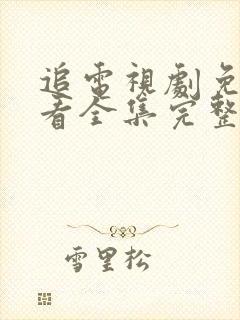 追電視劇免
看全集完整
雪里松